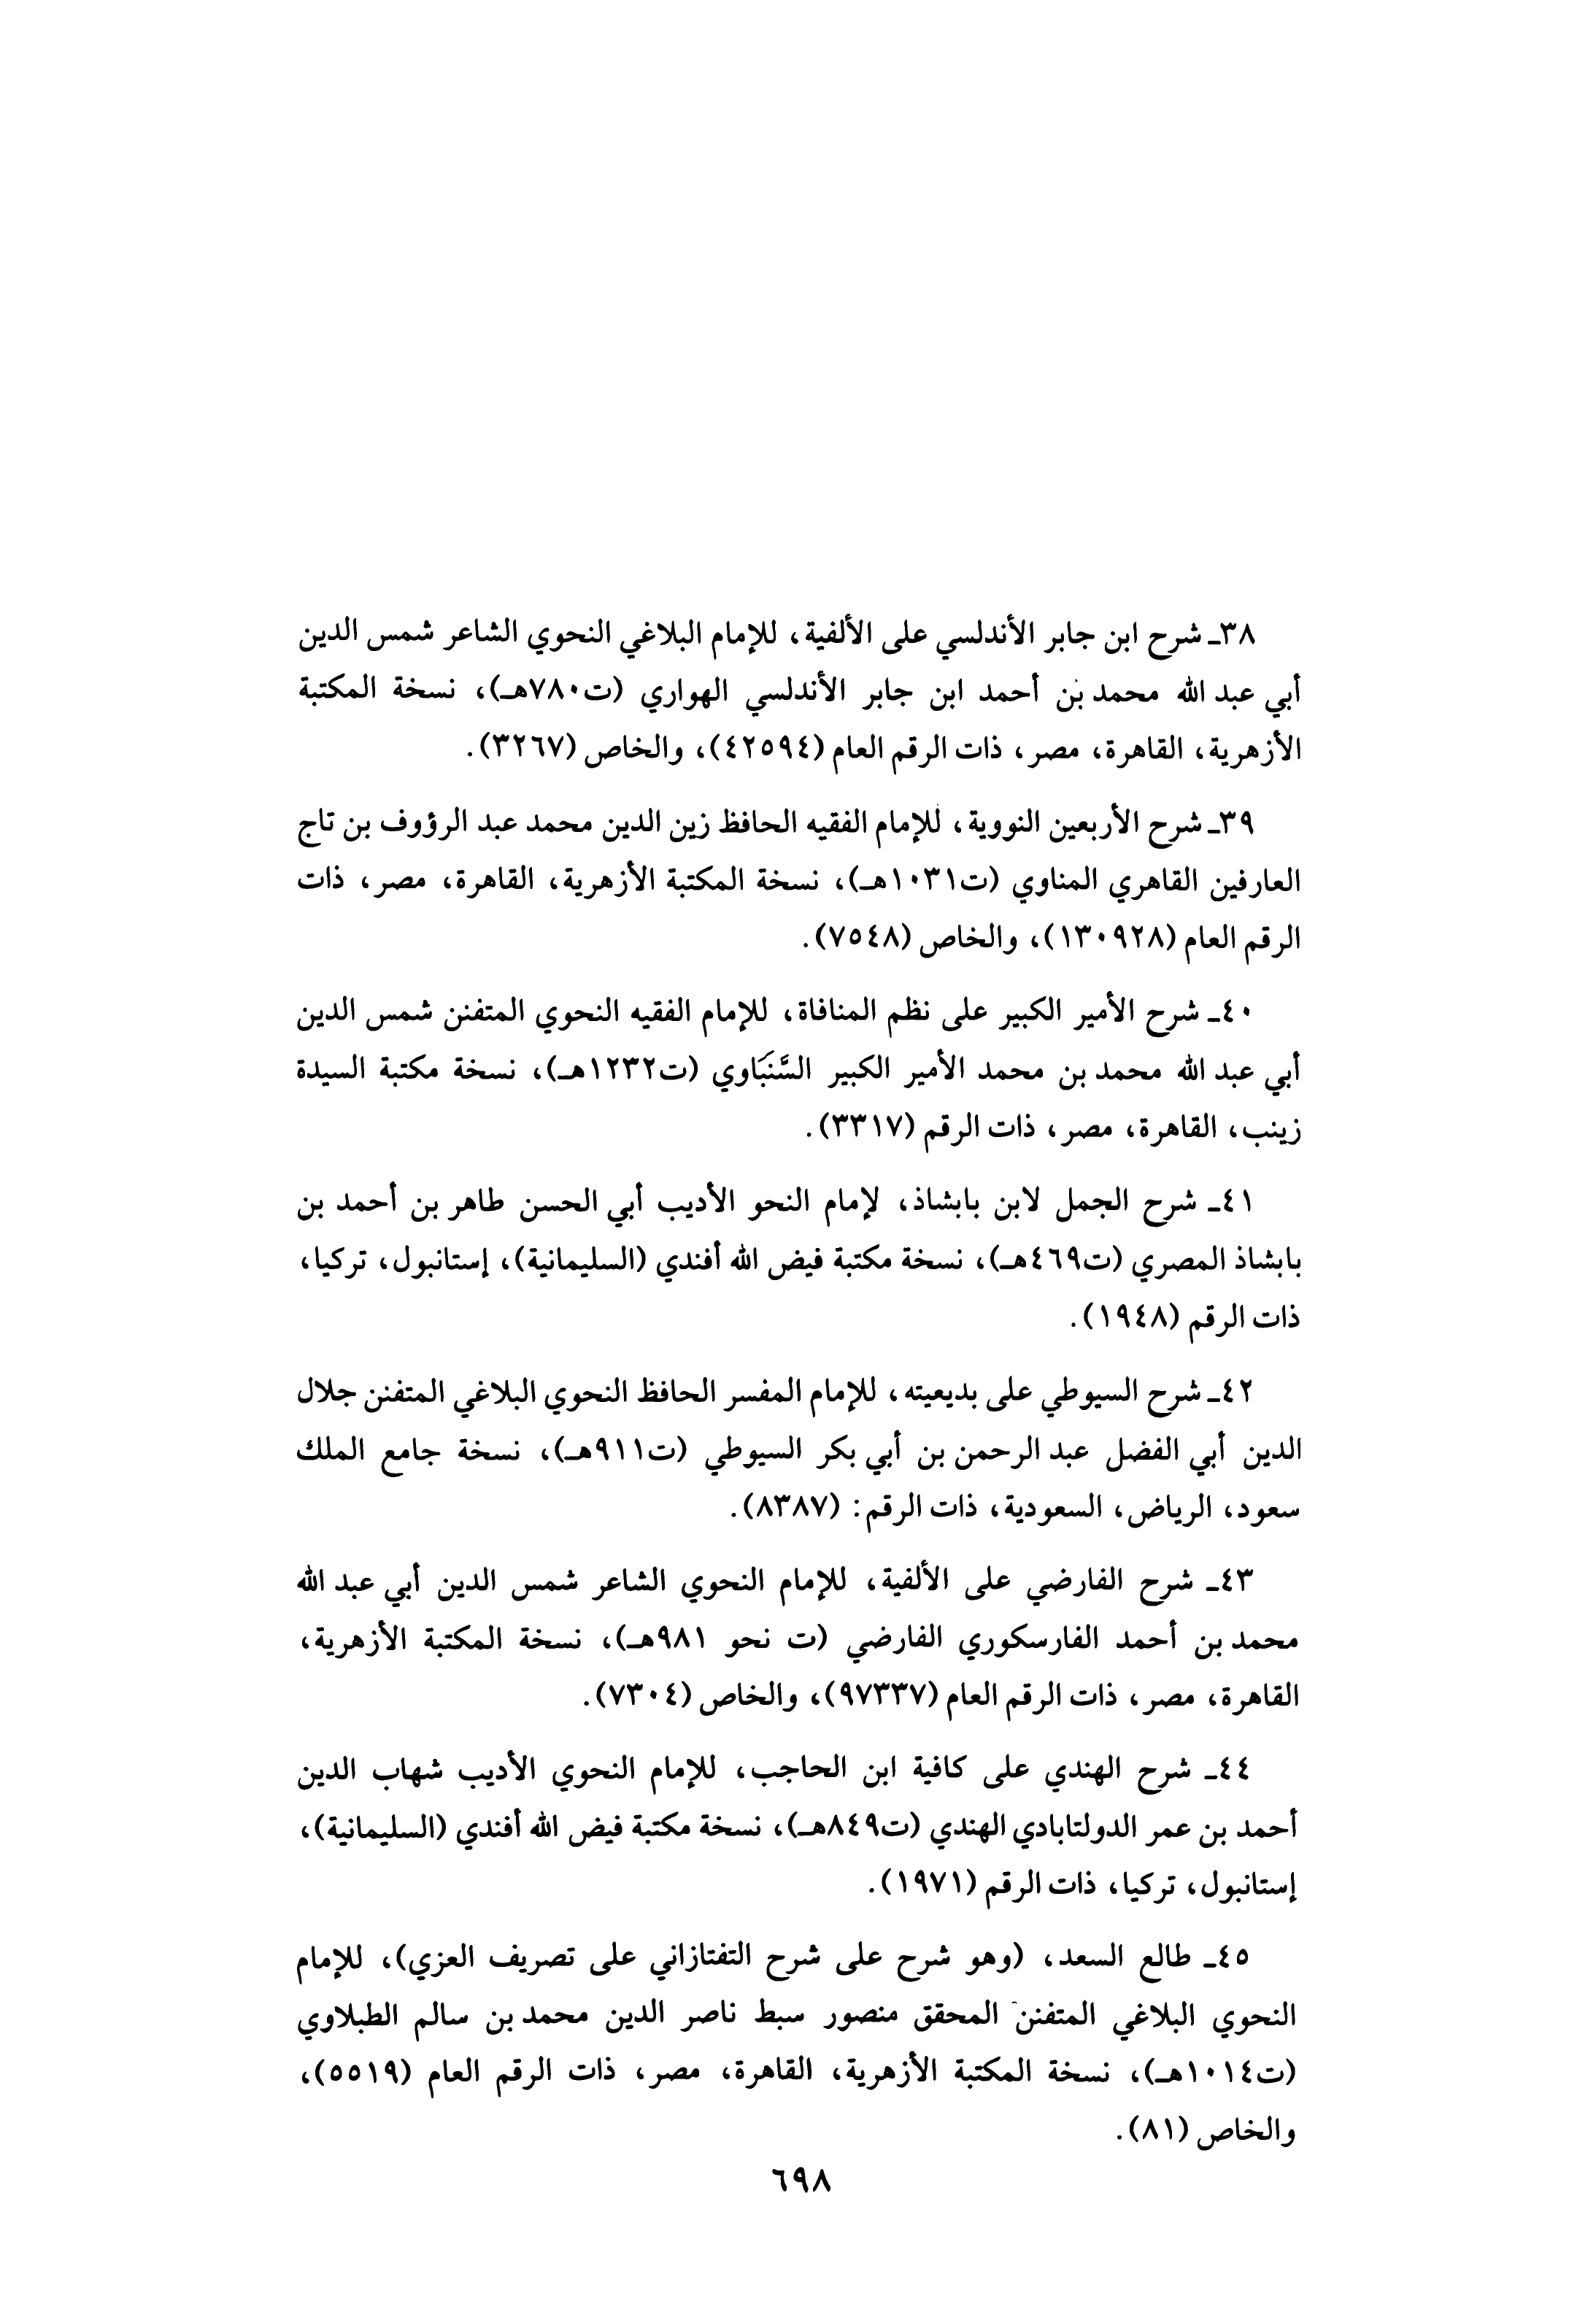 ٣٨ـ شرح ابن جابر الأندلسي على الألفية، للإمام البلاغي النحوي الشاعر شمس الدين
أبي عبد الله محمد بن أحمد ابن جابر الأندلسي الهواري (ت٧٨٠هـ)، نسخة المكتبة
الأزهرية، القاهرة، مصر، ذات الرقم العام (٤٢٥٩٤)، والخاص (٣٢٦٧).
٣٩ـ شرح الأربعين النووية، للإمام الفقيه الحافظ زين الدين محمد عبد الرؤوف بن تاج
العارفين القاهري المناوي (ت١٠٣١هـ)، نسخة المكتبة الأزهرية، القاهرة، مصر، ذات
الرقم العام (١٣٠٩٢٨)، والخاص (٧٥٤٨).
٤٠ـ شرح الأمير الكبير على نظم المنافاة، للإمام الفقيه النحوي المتفنن شمس الدين
أبي عبد الله محمد بن محمد الأمير الكبير السَّنبَاوي (ت١٢٣٢هـ)، نسخة مكتبة السيدة
زينب، القاهرة، مصر، ذات الرقم (٣٣١٧).
٤١ـ شرح الجمل لابن بابشاذ، لإمام النحو الأديب أبي الحسن طاهر بن أحمد بن
بابشاذ المصري (ت٤٦٩هـ)، نسخة مكتبة فيض الله أفندي (السليمانية)، إستانبول، تركيا،
ذات الرقم (١٩٤٨).
٤٢ـ شرح السيوطي على بديعيته، للإمام المفسر الحافظ النحوي البلاغي المتفنن جلال
الدين أبي الفضل عبد الرحمن بن أبي بكر السيوطي (ت٩١١هـ)، نسخة جامع الملك
سعود، الرياض، السعودية، ذات الرقم: (٨٣٨٧).
٤٣ـ شرح الفارضي على الألفية، للإمام النحوي الشاعر شمس الدين أبي عبد الله
محمد بن أحمد الفارسكوري الفارضي (ت نحو ٩٨١هـ)، نسخة المكتبة الأزهرية،
القاهرة، مصر، ذات الرقم العام (٩٧٣٣٧)، والخاص (٧٣٠٤).
٤٤ـ شرح الهندي على كافية ابن الحاجب، للإمام النحوي الأديب شهاب الدين
أحمد بن عمر الدولتابادي الهندي (ت٨٤٩هـ)، نسخة مكتبة فيض الله أفندي (السليمانية)،
إستانبول، تركيا، ذات الرقم (١٩٧١).
٤٥ـ طالع السعد، (وهو شرح على شرح التفتازاني على تصريف العزي)، للإمام
النحوي البلاغي المتفنن المحقق منصور سبط ناصر الدين محمد بن سالم الطبلاوي
(ت١٠١٤هـ)، نسخة المكتبة الأزهرية، القاهرة، مصر، ذات الرقم العام (٥٥١٩)،
والخاص (٨١).
٦٩٨